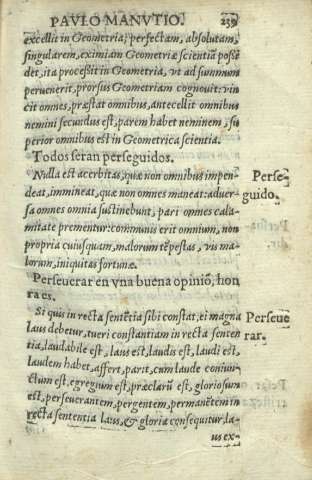 PAVLO MANVTIO. 239
excellit in Geometria, perfectam, absolutam,
singularem, eximiam Geometriæ scientiã possi
det, ita processit in Geometria, vt ad summum
peruenerit, prorsus Geometriam cognouit: vin
cit omnes, præstat omnibus, antecellit omnibus
nemini secundus est, parem habet neminem, su
perior omnibus est in Geometrica scientia.
Todos seran perseguidos.
Nulla est acerbitas, quæ non omnibus impen-
deat, immineat, quæ non omnes maneat: aduer-
sa omnes omnia sustinebunt, pari omnes cala-
mitate prementur: communis erit omnium, non
propria cuiusquam, malorum tẽpestas, vis ma-
lorum, iniquitas fortunæ.
Perse-
guido.
Perseuerar en vna buena opiniõ, hon
ra es.
Si quis in recta sentẽtia sibi constat, ei magna
laus debetur, tueri constantiam in recta senten
tia, laudabile est, laus est, laudis est, laudi est,
laudem habet, affert, parit, cum laude coniun-
ctum est, egregium est, præclarũ est, gloriosum
est, perseuerantem, pergentem, permanẽtem in
recta sententia laus, & gloria consequitur, la-
us ex-
Perseue
rar.